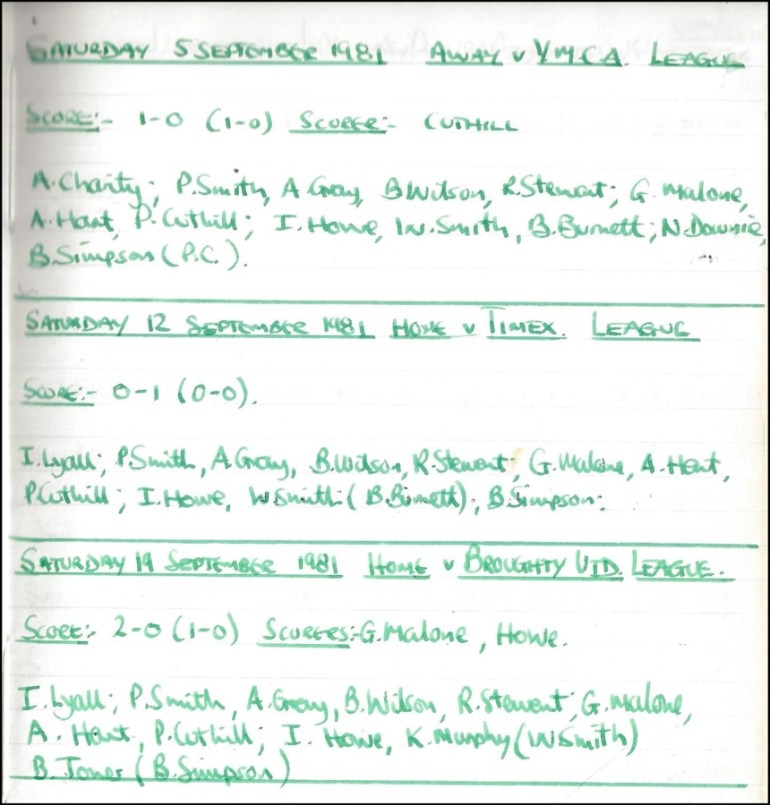 SATURDAY 5 SEPTEMBER 1981 AWAY v Y.M.C.A. LEAGUE
SCORE:- 1-0 (1-0) SCORER:- CUTHILL
A. Charity; P. Smith, A Gray, B Wilson, R. Stewart; G. Malone,
A. Hart, P. Cuthill; I. Howe, W. Smith, B. Burnett; N. Downie,
B. Simpson (P.C.).
SATURDAY 12 SEPTEMBER 1981 HOME v TIMEX. LEAGUE
SCORE:- 0-1 (0-0).
I. Lyall; P. Smith, A. Gray, B. Wilson, R. Stewart; G. Malone, A. Hart,
P. Cuthill; I. Howe, W Smith (B. Burnett); B. Simpson:
SATURDAY 19 SEPTEMBER 1981 HOME v BROUGHTY UTD. LEAGUE.
SCORE:- 2-0 (1-0) SCORERS:- G. Malone, Howe.
I. Lyall; P. Smith, A. Gray, B. Wilson, R. Stewart; G. Malone,
A. Hart, P. Cuthill; I. Howe, K. Murphy (W Smith)
B. Jones (B. Simpson)